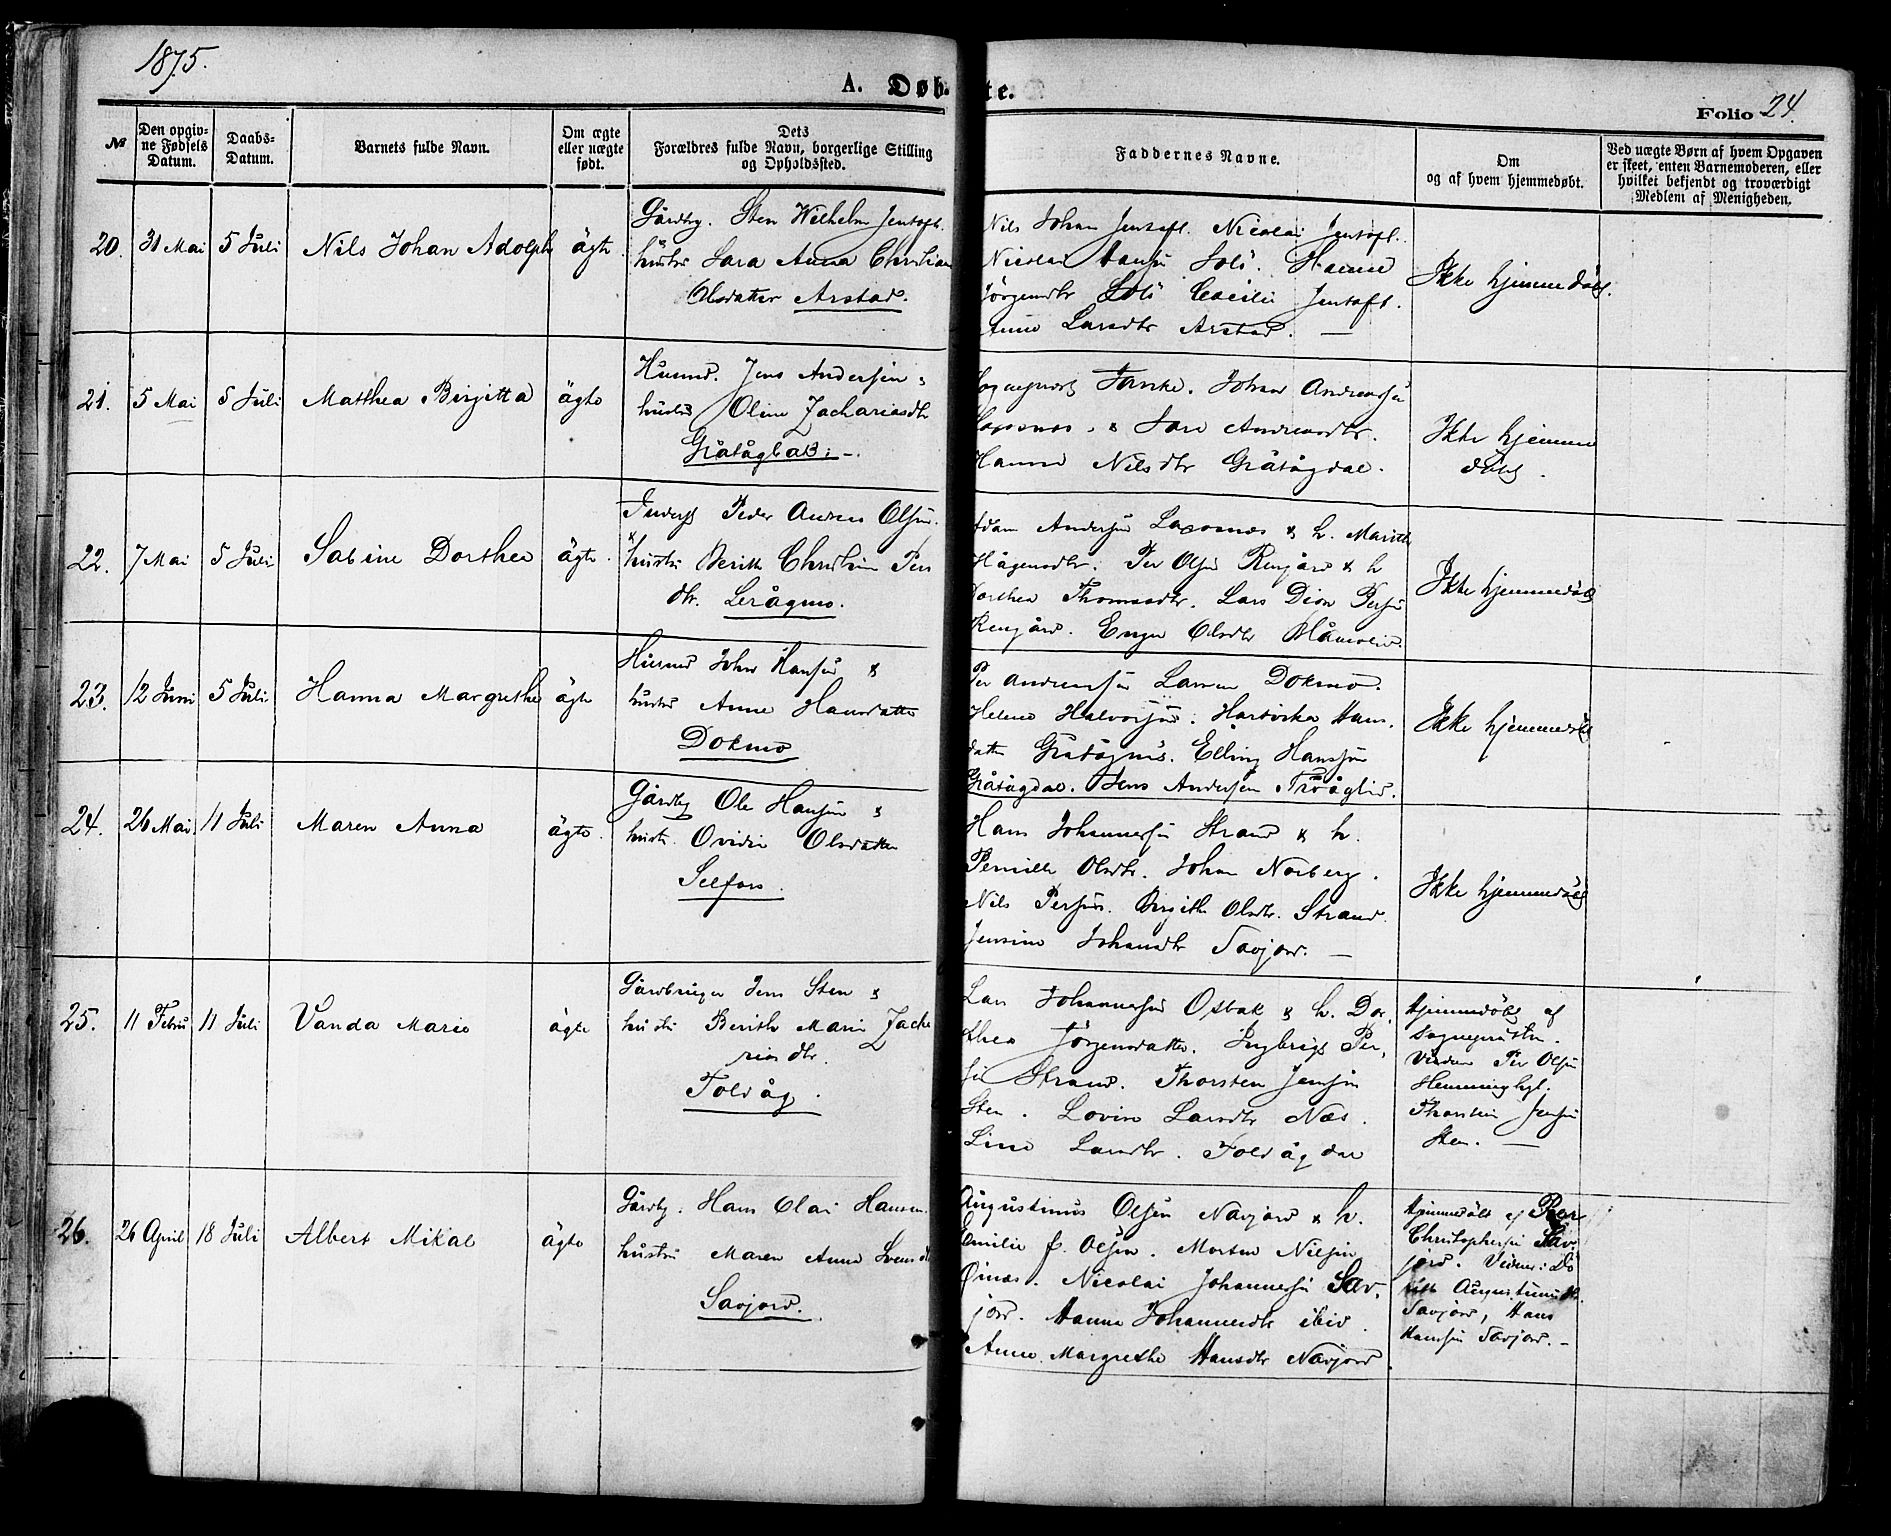 1875.
A. Døbte.
Folio 24.
№
Den opgiv-
ne Fødsels
Datum.
Daabs-
Datum.
Barnets fulde Navn.
Om ægte
eller uægte
født.
Dets
Forældres fulde Navn, borgerlige Stilling
og Opholdssted.
Faddernes Navne.
Om
og af hvem hjemmedøbt.
Ved uægte Børn af hvem Opgaven
er skeet, enten Barnemoderen, eller
hvilket bekjendt og troværdigt
Medlem af Menigheden.
20. 31 Mai 5 Juli Nils Johan Adolph ägte
Gårdbg. Sten Wilhelm Jentoft.
hustru Sara Anna Christian
Olsdatter Arstad.
Nils Johan Jentoft. Nicolai Jentoft.
Nicolai Hansen Solö. Hanne
Jörgendtr Solö Cecilie Jentoft.
Anne Larsdtr Arstad. —
Ikke hjemmedöbt.
21. 5 Mai 5 Juli Matthea Birgitta ägte
Husmd. Jens Andersen &
hustru Oline Zachariasdtr
Gråtågbak. -
Fønske. Johan Andreassen
Laxosnæs & Andreasdtr.
Hanne Nilsdtr Gråtågdal.
Ikke hjemme
döbt.
22. 7 Mai 5 Juli Sabine Dorthea ägte.
Inderst Peder Andreas Olsen.
& hustru Berith Christine Pers
dtr. Leråğmo.
Adam Andersen Laxosnæs & h. Marith
Hågensdtr. Per Olsen Rengård & h
Dorthea Thomasdtr. Lars Dion Persen
Rengård. Olsdtr
Ikke hjemmedöbt
23. 12 Juni 5 Juli Hanna Margrethe ägte
Husmd Johan Hansen &
hustru Anne Hansdatter
Dokmo
Per Andreassen Larsen Dokmo.
Helene Halvorsen. Hartvikka Hans
datter Gråtågnæs. Elling Hanssen
Gråtågdal. Jens Andersen Tröåglid.
Ikke hjemmedöbt
24. 26 Mai 11 Juli Maren Anna ägte.
Gårdbg Ole Hansen &
hustr. Ovidie Olsdatter
Selfors.
Hans Johannessen Strand & h.
Pernille Olsdtr. Johan Norberg.
Nils Persen. Birgith Olsdtr. Strand.
Jensine Johansdtr Savjord. —
Ikke hjemmedöbt
25. 11 Febru 11 Juli Vanda Marie ägte
Gårdbruger Jens Sten &
hustru Berith Marie Zacha
rias dtr.
Toldåg.
Lars Johannessen Osbak & h. Dor,
thea Jörgensdatter. Ingbrigt Per,
sen Strand. Thorsten Jensen
Sten. Lovise Larsdtr Næs.
Line Larsdtr. Toldågdal
Hjemmedöbt af
Sogneprüsten.
Vidner Per Olsen
Hemminghyt.
Thorstein Jensen
Sten. —
26. 26 April 18 Juli Albert Mikal ägte
Gårdbg. Hans Olai Hansen.
hustru Maren Anna Svensdtr
Savjord.
Augustinus Olsen Navjord & h.
Emilie f. Olsen. Morten Nilsen
Öinæs. Nicolai Johannessen Sav,
jord. Hanna Johannesdtr ibid.
Anne Margrethe Hansdtr Navjord.
Hjemmedöbt af Peder
Christophersen Sav,
jord. Vidner:
Augustinus
Savjord, Hans
Hansen Savjord. -